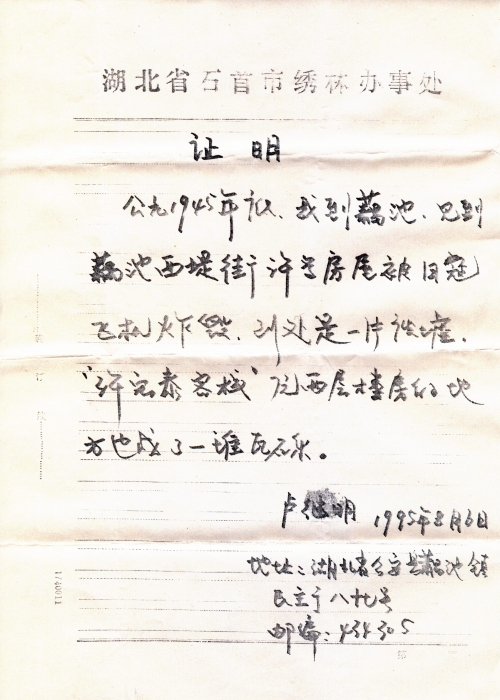 湖北省石首市绣林办事处
证明
公元1945年秋、我到藕池、见到
藕池西堤街许多房屋被日寇
飞机炸毁、到处是一片
"许宏泰客栈"
方也成了一堆瓦石
卢 明 1995年8月6日
地址:湖北省公安县藕池镇
民主街八十七号
邮编:434305
1740011